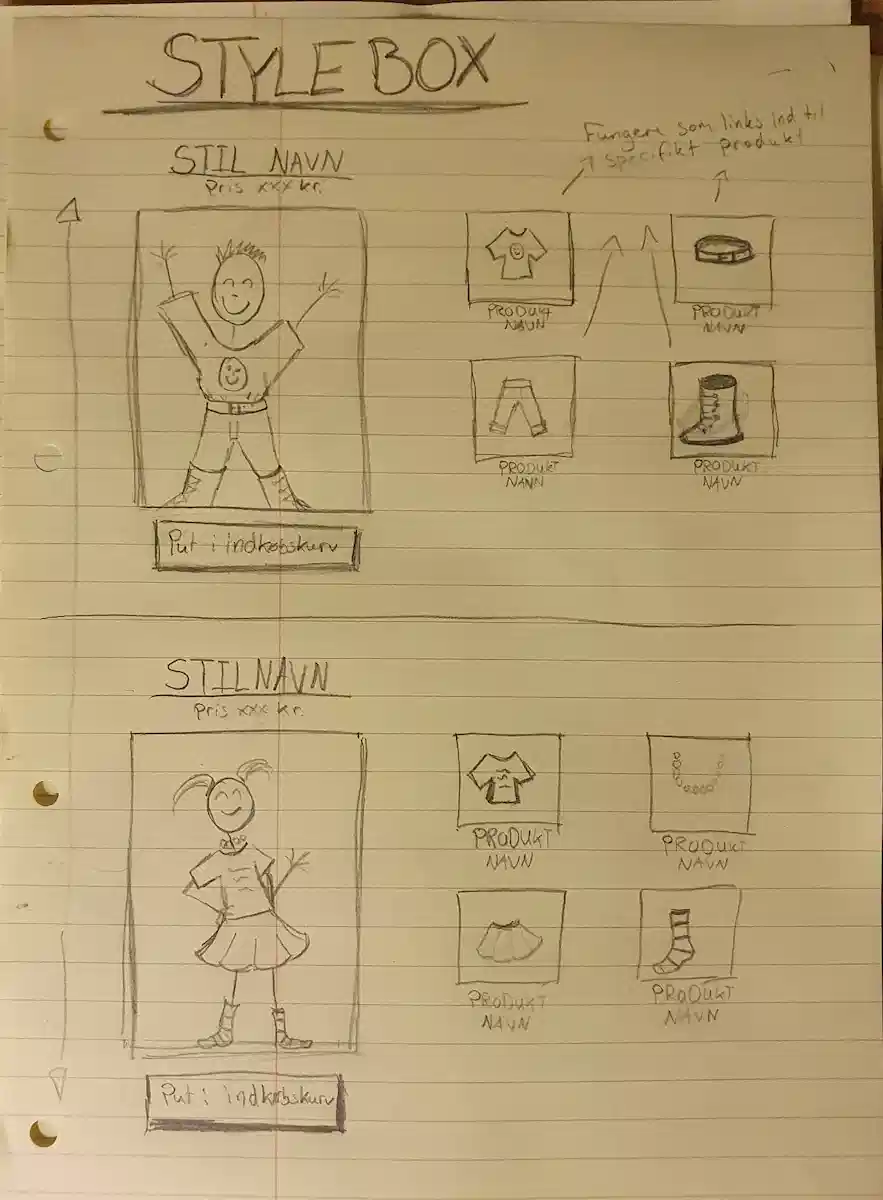 STYLE BOX
Fungere som links ind til
specifikt produkt
STIL NAVN
Pris xxx kr.
PRODUKT
NAVN
PRODUKT
NAVN
PRODUKT
NANN
PRODUKT
NAVN
Put i indkøbskurv
STIL NAVN
Pris xxx kr.
PRODUKT
NAVN
PRODUKT
NAVN
PRODUKT
NAVN
PRODUKT
NAVN
Put i indkøbskurv